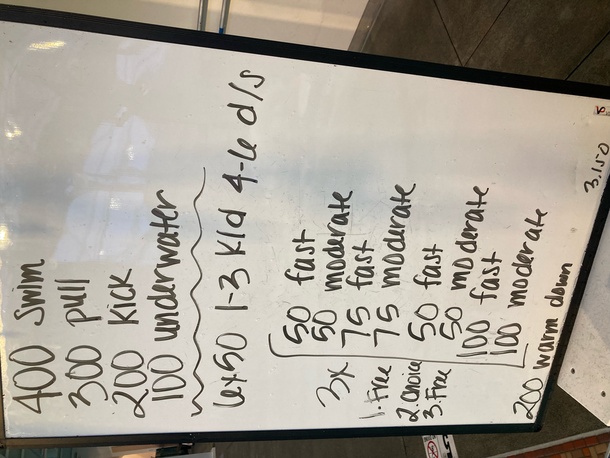 400 Swim
300 pull
200 kick
100 underwater
6x50 1-3 K/d 4-6 d/s
50 fast
50 moderate
3x 75 fast
1. Free 75 moderate
2. Choice 50 fast
3. Free 50 moderate
100 fast
100 moderate
200 warm down
3,150